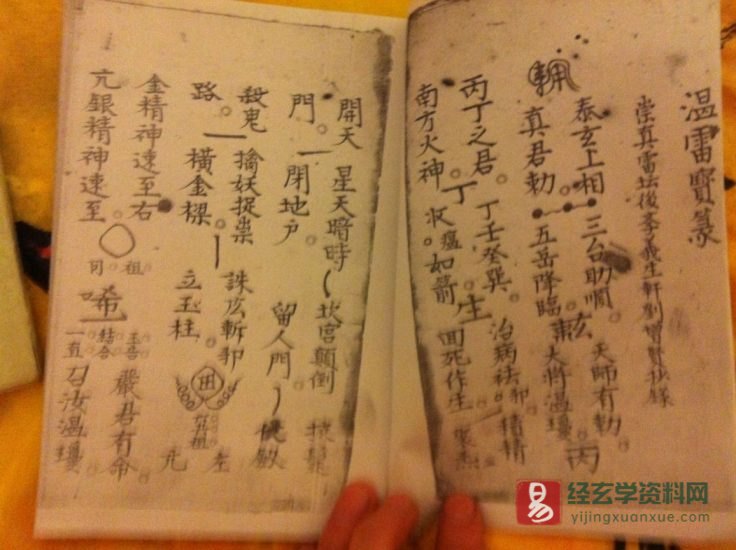 温雷寳篆
崇真雷坛後孝義生軒劉增賢抄錄
泰玄上相 三台助順 天師有勅
真君勅 五岳降臨 大将温瓊 丙
丙丁之君 丁壬癸巽 治病祛邪 精精
丁 生
南方火神 收瘟如箭 回死作生
開天 星天暗時 坎宫顛倒
門 閉地户 留人門
殺鬼 擒妖捉祟 誅厷斬却
路 橫金樑 立玉柱
金精神速至右
亢銀精神速至
司祖
唏 結合 玉音 嚴君有命
一直 召汝温瓊
左
亢
易 经玄学资料网
yijingxuanxue.com